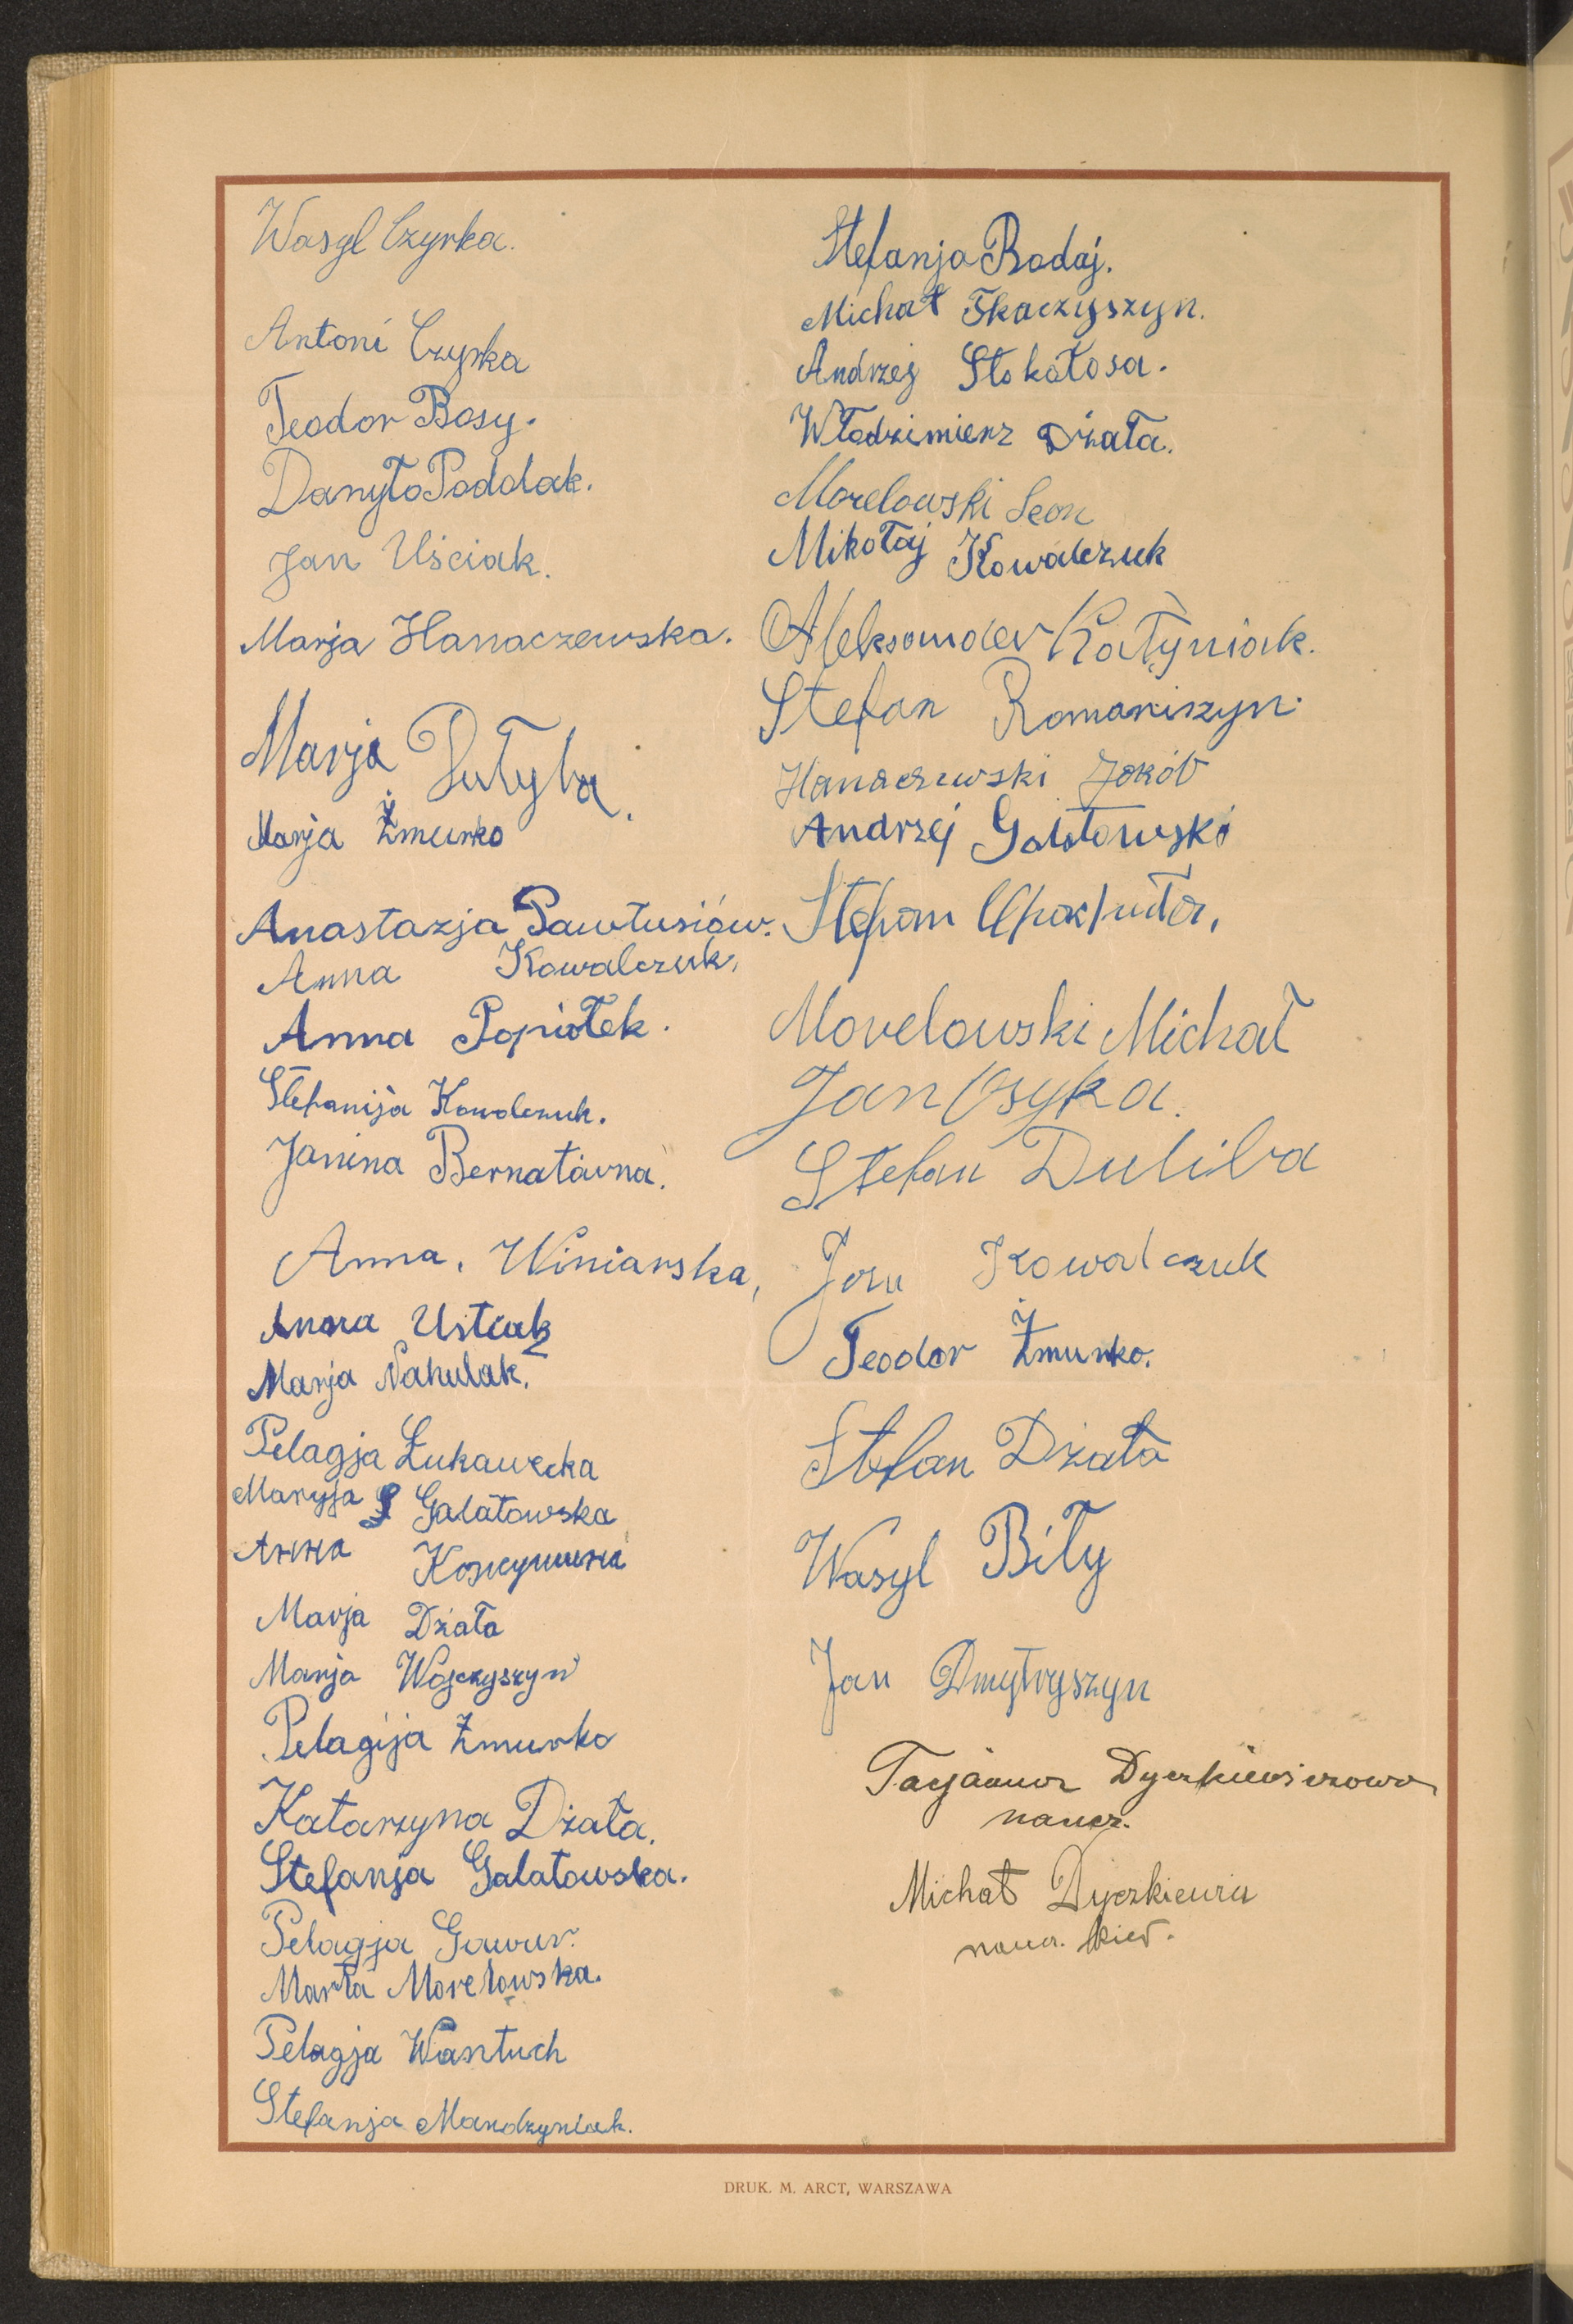 Wasyl Czyrka.
Antoni Czyrka
Teodor Bosy.
Danyło Podolak.
Jan Uściak.
Marja Hanaczewska.
Marja Dutyba.
Marja Żmurko
Anastazja Pawłusiów.
Anna Kowalczuk,
Anna Popiołek.
Stefanija Kowalczuk.
Janina Bernatówna.
Anna, Winiarska,
Anna Ustiak
Marja Nahulak.
Pelagja Łukawecka
Maryja Galatowska
Anna
Marja Dżała
Marja Wojczyszyn
Pelagija Żmurko
Katarzyna Dżała.
Stefanja Galatowska.
Pelagja Gawur.
Marta Morelowska.
Pelagja Wantuch
Stefanja Mandzyniak.
Stefanja Badaj.
Michał Tkaczyszyn.
Andrzej Stokołosa.
Włodzimierz Dżała.
Morelowski Leon
Mikołaj Kowalczuk
Aleksander Kałyniak.
Stefan Romaniszyn.
Hanaczewski Jakób
Andrzej Galatowski
Stefan
Morelowski Michał
Jan Czyrka.
Stefan Duliba
Jan Kowalczuk
Teodor Żmurko.
Stefan Dżała
Wasyl Biły
Jan Dmytryszyn
Tacjanna Dyczkiewiczowa
naucz.
Michał Dyczkiewicz
naucz. kier.
DRUK. M. ARCT, WARSZAWA